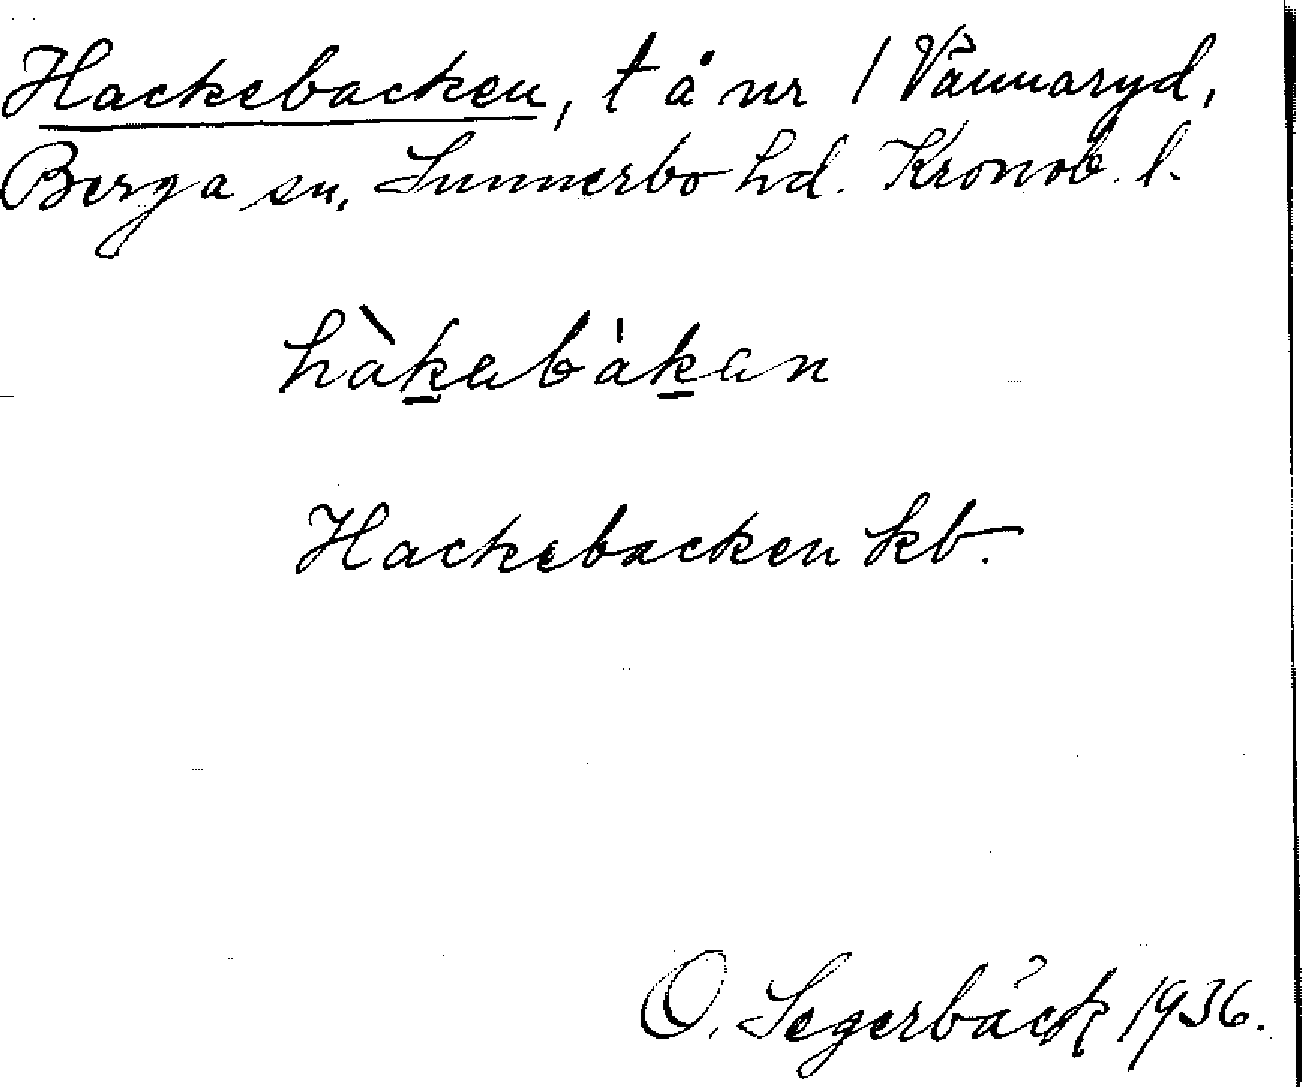 Hackebacken, t å nr 1 Vännaryd,
Berga sn, Sunnerbo hd. Kronob. l.
hàkabákan
Hackebacken kb.
O. Segerbäck 1936.